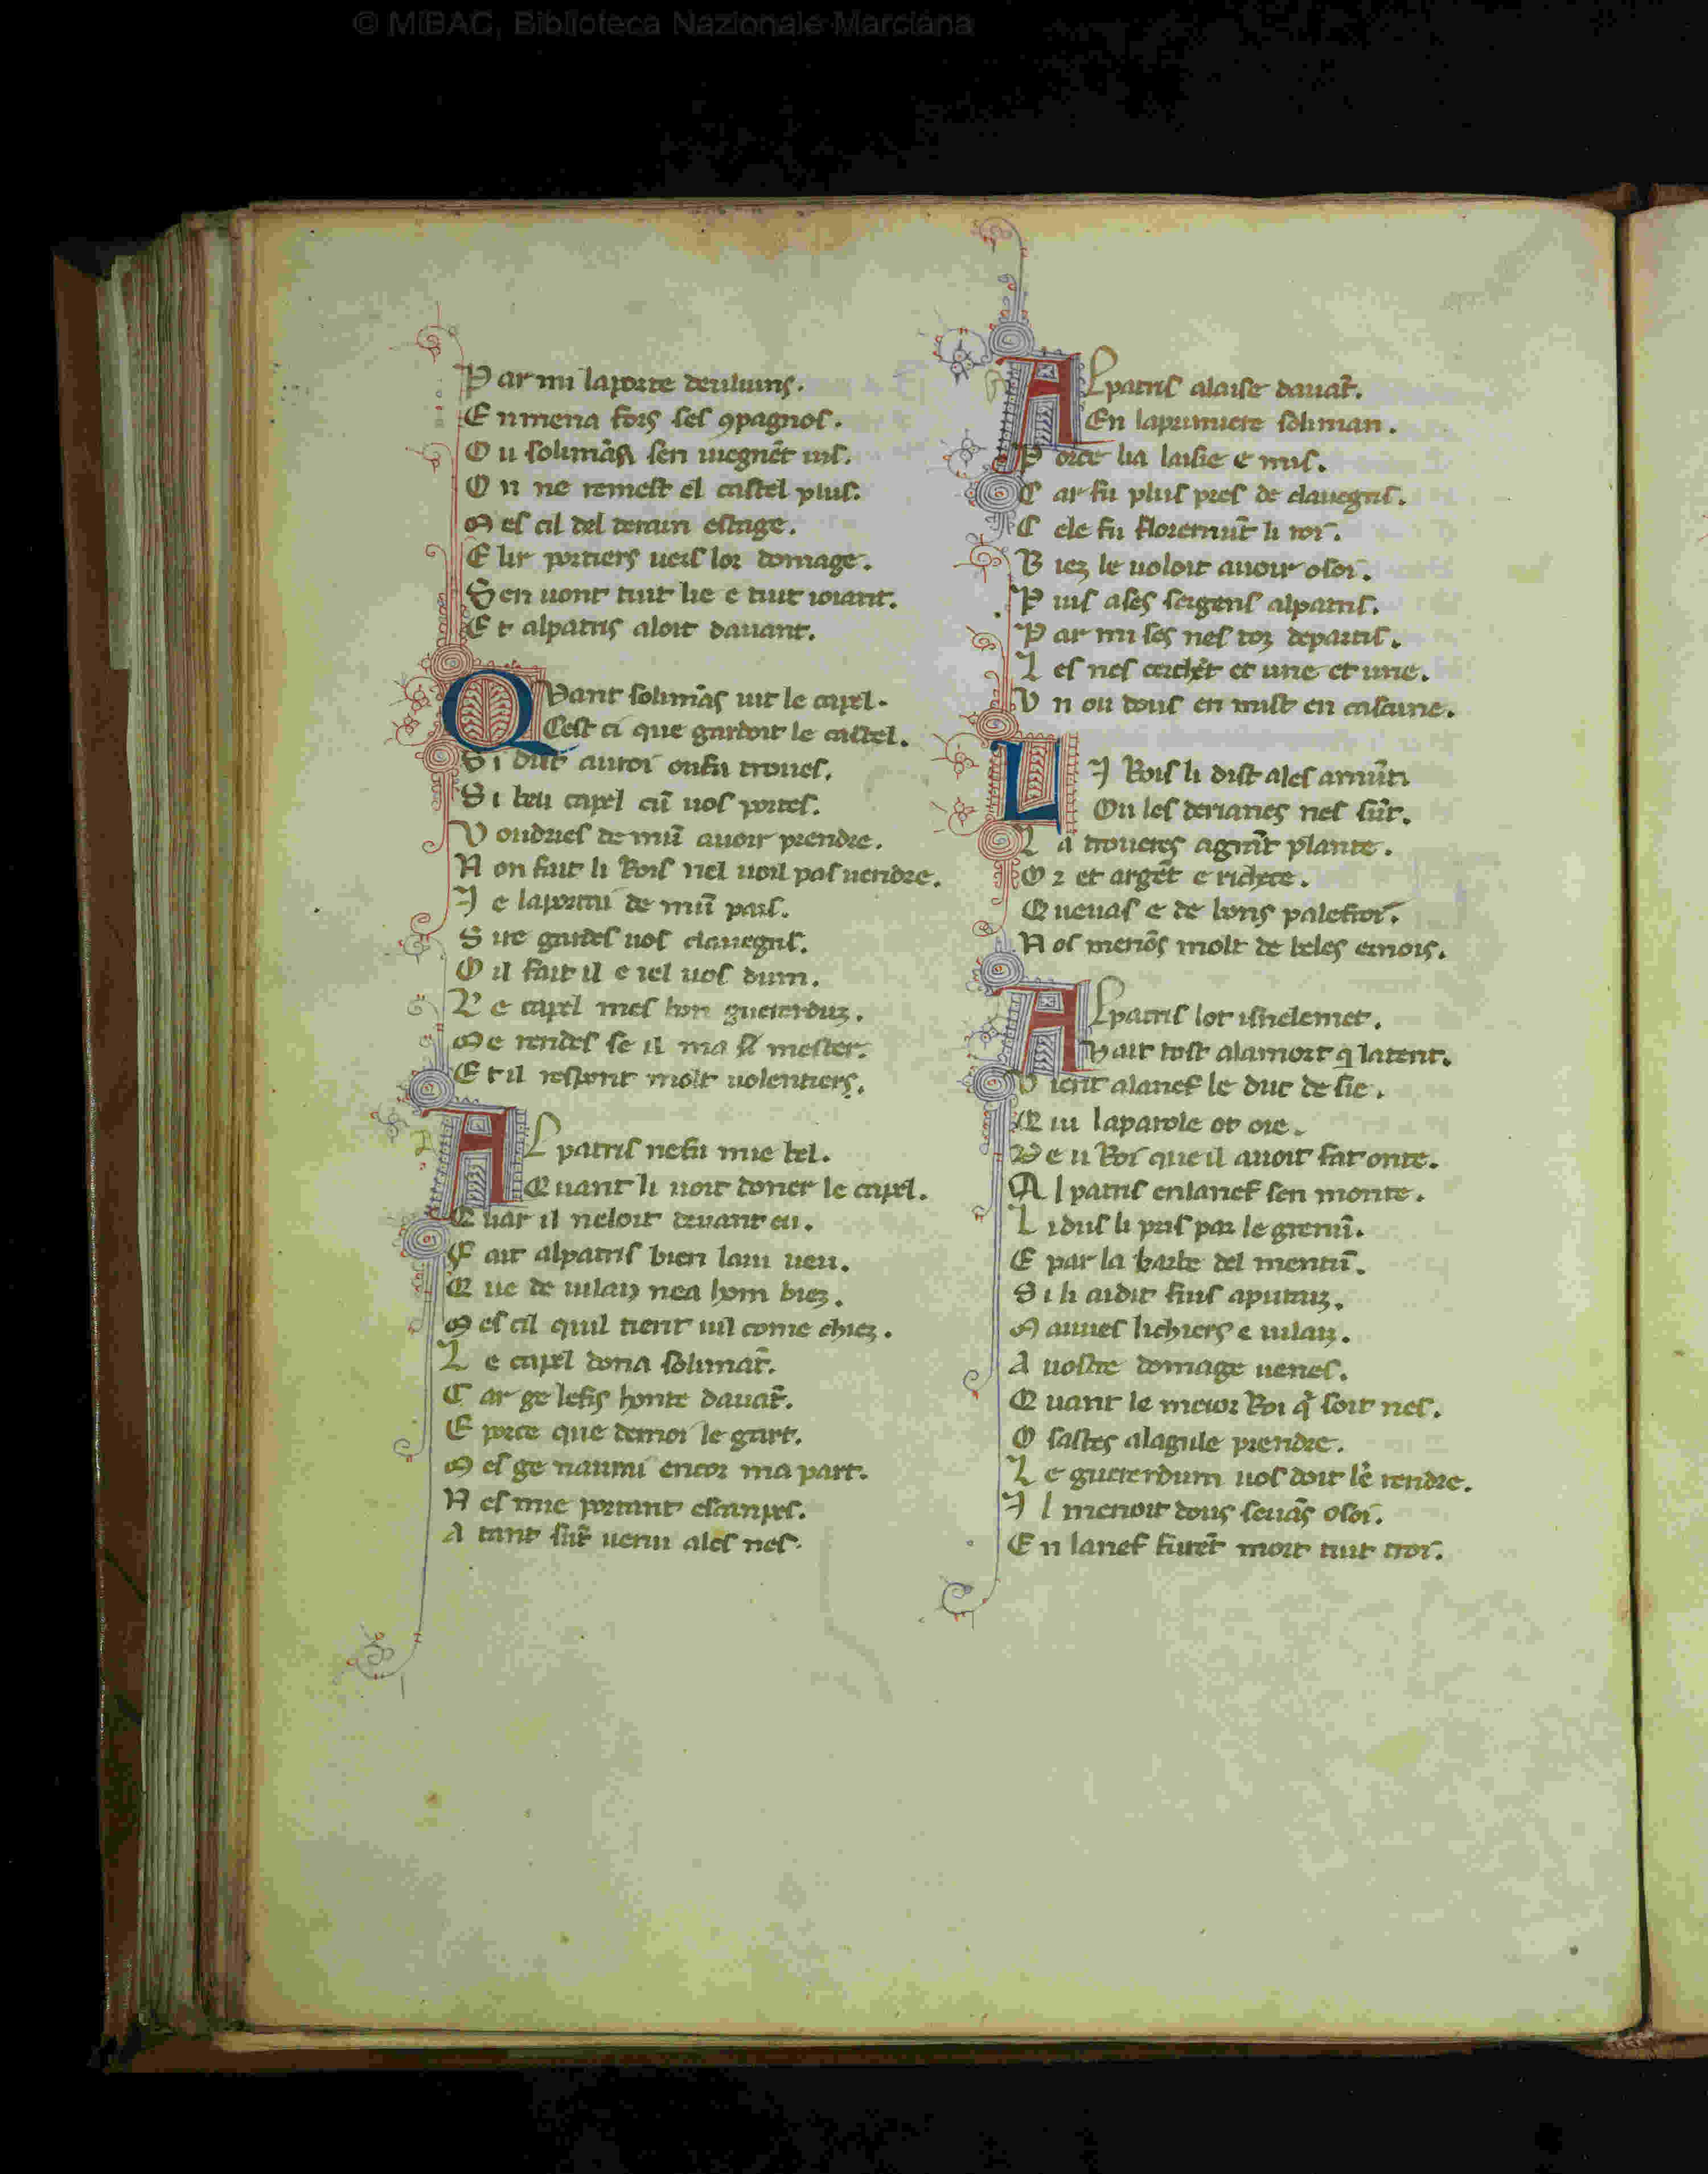 © MiBAC, Biblioteca Nazionale Marciana
P ar mi laporte
E nmena fors ses ꝯpagnos.
O u sen uiegnēt uis.
O n ne remest el castel plus.
M es cil del derain estage.
E lir portiers ueis lor domage.
S en uont tuit lie e tuit ioiant.
E t alpatris aloit dauant.
Quant solimās uit le capel.
Cest ci que gardoit le castel.
S i dist autroi onfu troues.
S i beu capel cū uos portes.
V oudries de mū auoir prendre.
N on fait li Rois nel uoil pas uendre.
I e laportai de mū pais.
S ire gardes uos clauegris.
O il fait il e iel uos dum.
L e capel mes bon guererduz.
M e rendes se il ma mester.
E t il respont molt uolentiers.
ALpatris nefu mie bel.
Quant li uoit doner le capel.
Q uar il neloit deuant eu.
F ait alpatris bien lam ueu.
Q ue de uilan nea hom biez.
M es cil quil tient uil come chiez.
L e capel dona solimāt.
C ar ge lefis honte dauāt.
E porce que demoi le gart.
M es ge naurai encor ma part.
N es mie portant escanpes.
A tant sūt uenu ales nes.
ALpatris alaise dauāt.
En lapremiere soliman.
P orce lia laisie e mis.
C ar fu plus pres de clauegris.
C ele fu floremūt li roi.
B iez le uoloit auoir o soi.
P uis ases seigens alpatris.
P ar mi ses nes toz departis.
L es nes cerchēt et une et une.
V n ou dous en mist en cascune.
LI Rois li dist ales amūt.
Ou les derianes nes sūt.
L a troueres agrāt plante.
O r et argēt e richece.
Q ueuas e de bons palefroi.
N os menōs molt de beles ernois.
ALpatris lot isnelemēt.
Vait tost alamort q̄ latent.
V ient alanef le duc de sie.
Q ui laparole ot oie.
D e u Roi que il auoit fat onte.
A lpatris enlanef sen monte.
L idus li pris par le grenū.
E par la barbe del mentū.
S i li aidit fius aputaiz.
M auues lichiers e uilaz.
A uostre domage uenes.
Q uant le meior Roi q̄ soit nes.
O sastes alagule prendre.
L e guererdum uos doit lē rendre.
I l menoit dous seuās o soi.
E n lanef furēt mort tuit troi.